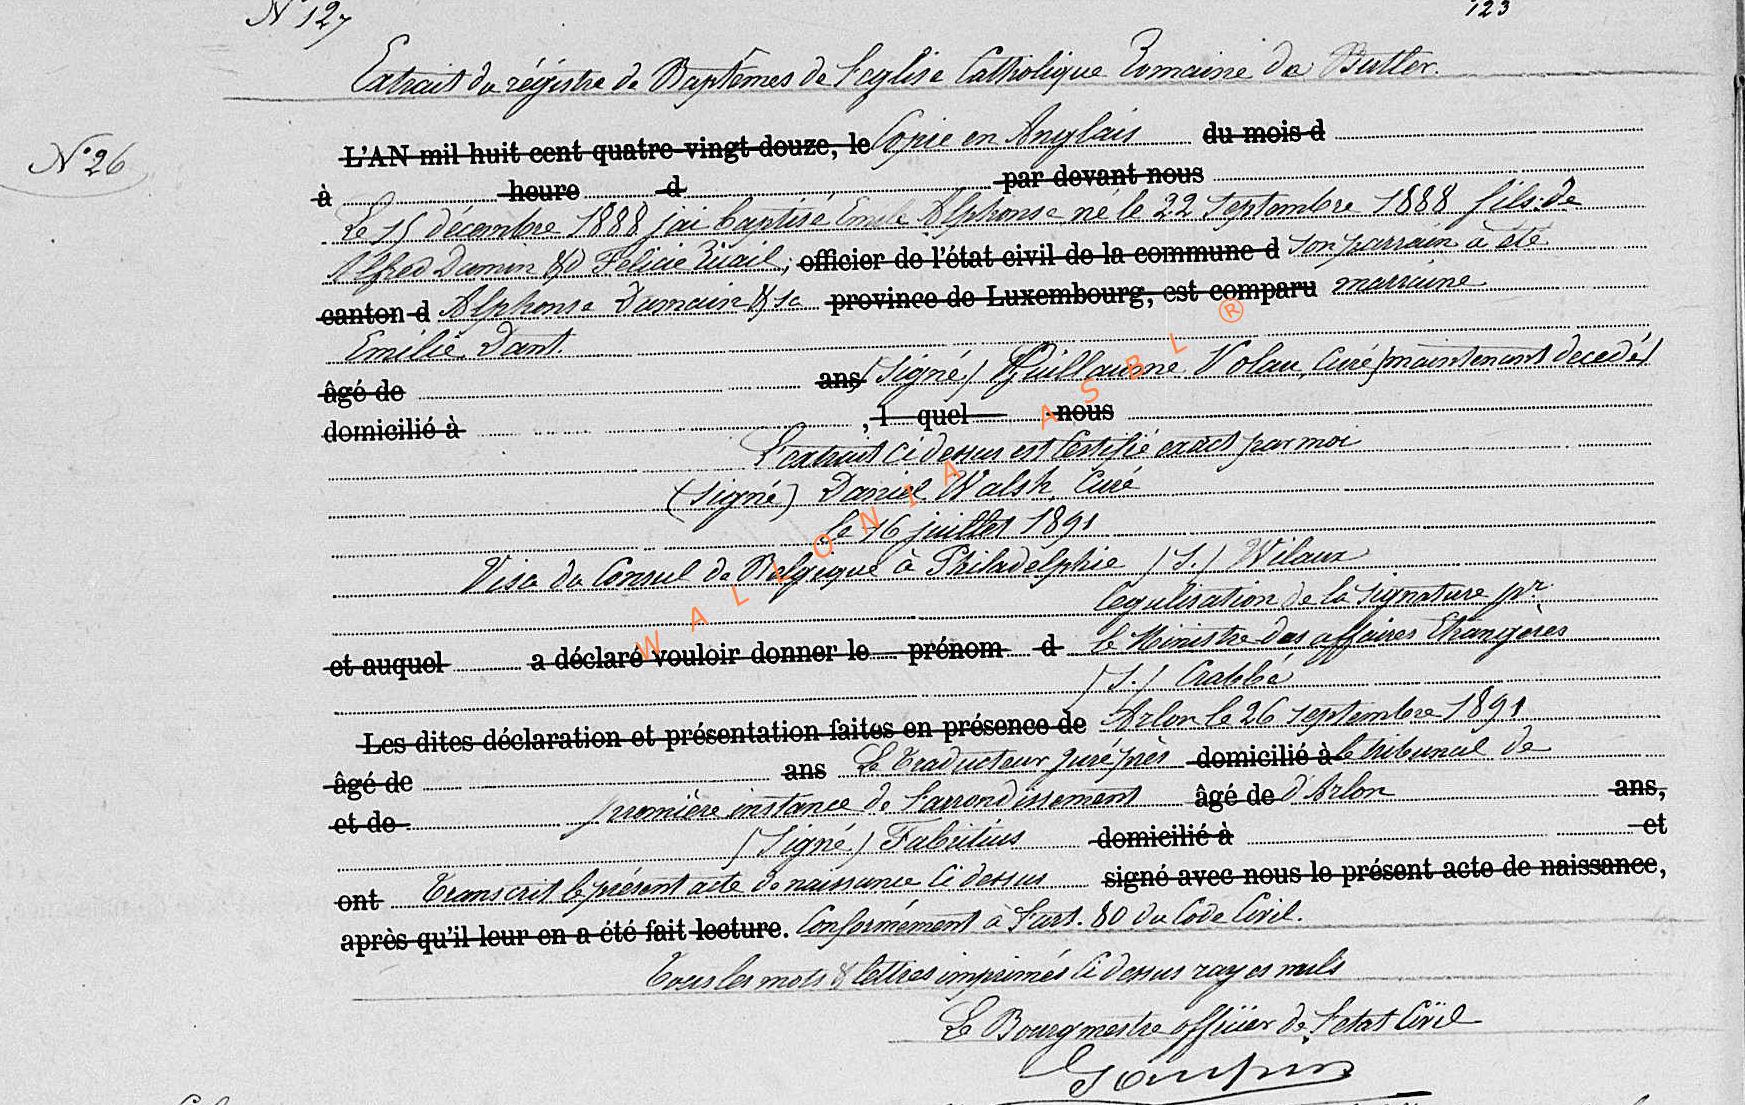 N° 127
123
Extrait du régistre de Baptêmes de l'église Catholique Romaine de Butler.
N° 26
L'AN mil huit cent quatre-vingt-douze, le Copie en Anglais du mois d
à heure d par devant nous
Le 15 décembre 1888 j'ai baptisé Emile Alphonse né le 22 septembre 1888 fils de
Alfred Damin & Félicie ; officier de l'état civil de la commune d son parrain a été
canton d Alphonse Dumain & sa province de Luxembourg, est comparu marraine
Emilie Dant.
âgé de ans (signé) Guillaume Nolan, Curé, maintenant decedé)
domicilié à , l quel nous
L'extrait ci dessus est certifié exact par moi
(signé) Daniel Walsh, Curé
Le 16 juillet 1891
Visa du Consul de Belgique à Philadelphie (S.) Wilaux
legalisation de la signature pr
et auquel a déclaré vouloir donner le prénom d le Ministre des affaires Etrangères
(S.) Crabbé
Les dites déclaration et présentation faites en présence de Arlon le 26 septembre 1891
âgé de ans Le traducteur juré près domicilié à le tribunal de
et de première instance de l'arrondissement âgé de d'Arlon ans,
(signé) Fabritius domicilié à et
ont transcrit le présent acte de naissance ci dessus signé avec nous le présent acte de naissance,
après qu'il leur en a été fait lecture. Conformément à l'art. 80 du Code Civil.
Tous les mots & lettres imprimés ci dessus rayés nuls
Le Bourgmestre officier de l'état Civil
WALLONIA ASBL ®